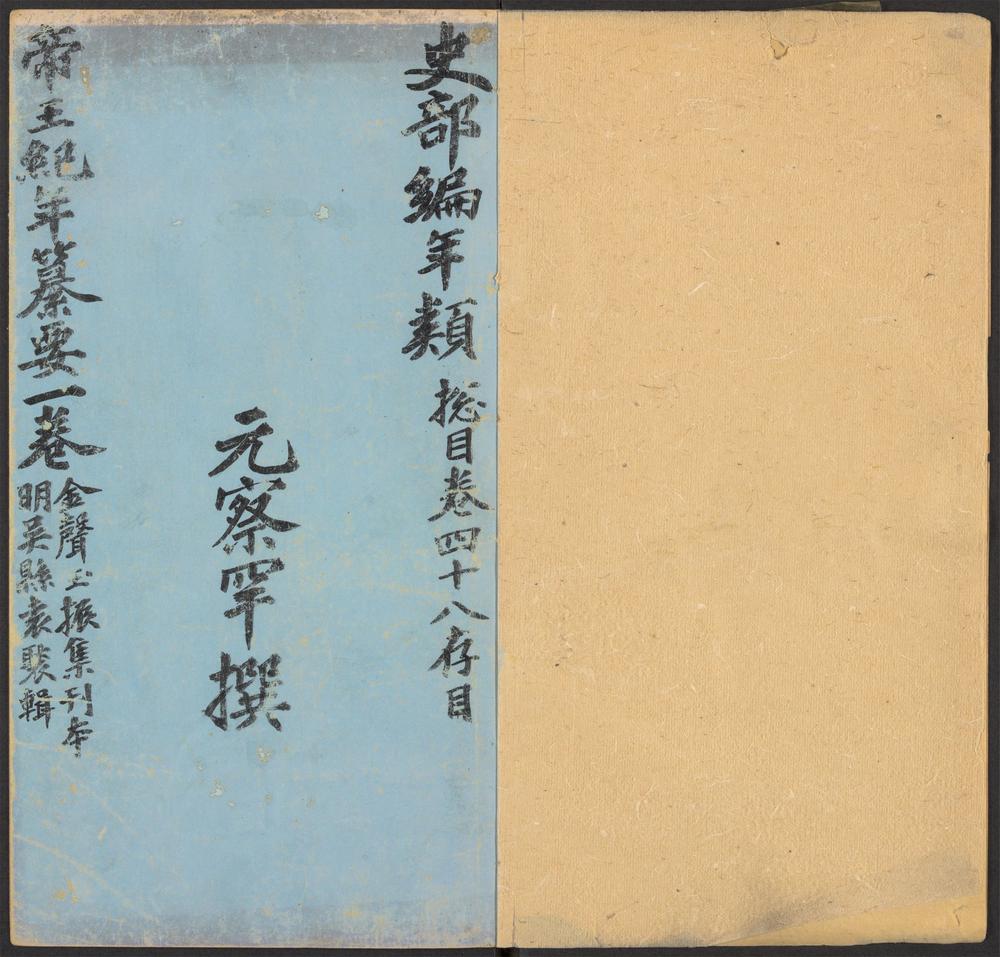 史部編年類 㧾目卷四十八存目
元察罕撰
帝王紀年纂要一卷
金聲玉振集刊本
明吳縣袁褧輯